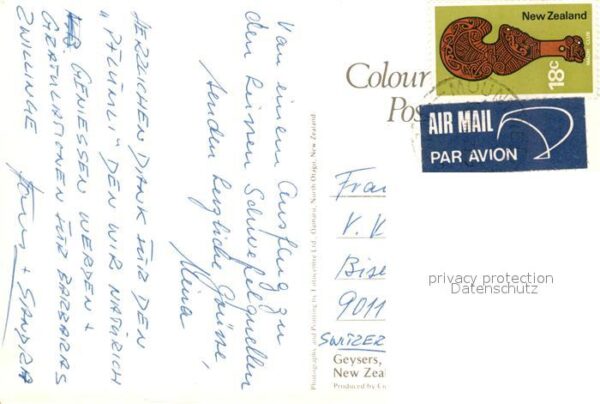 Von einem Ausflug zu
den heissen Schwefelquellen
senden herzliche Grüsse,
Nina
HERZLICHEN DANK FÜR DEN
"PFLÜMLI" DEN WIR NATÜRLICH
GENIESSEN WERDEN +
GRATULATIONEN FÜR BARBARAS
ZWILLINGE
+ SANDRA
Photography and Printing by Colourview Ltd., Oamaru, North Otago, New Zealand.
New Zealand
MAORI CLUB
18c
Colour
Pos
AIR MAIL
PAR AVION
Fra
V. K
Bise
9011
SWITZER
privacy protection
Datenschutz
Geysers,
New Zea
Produced by Co